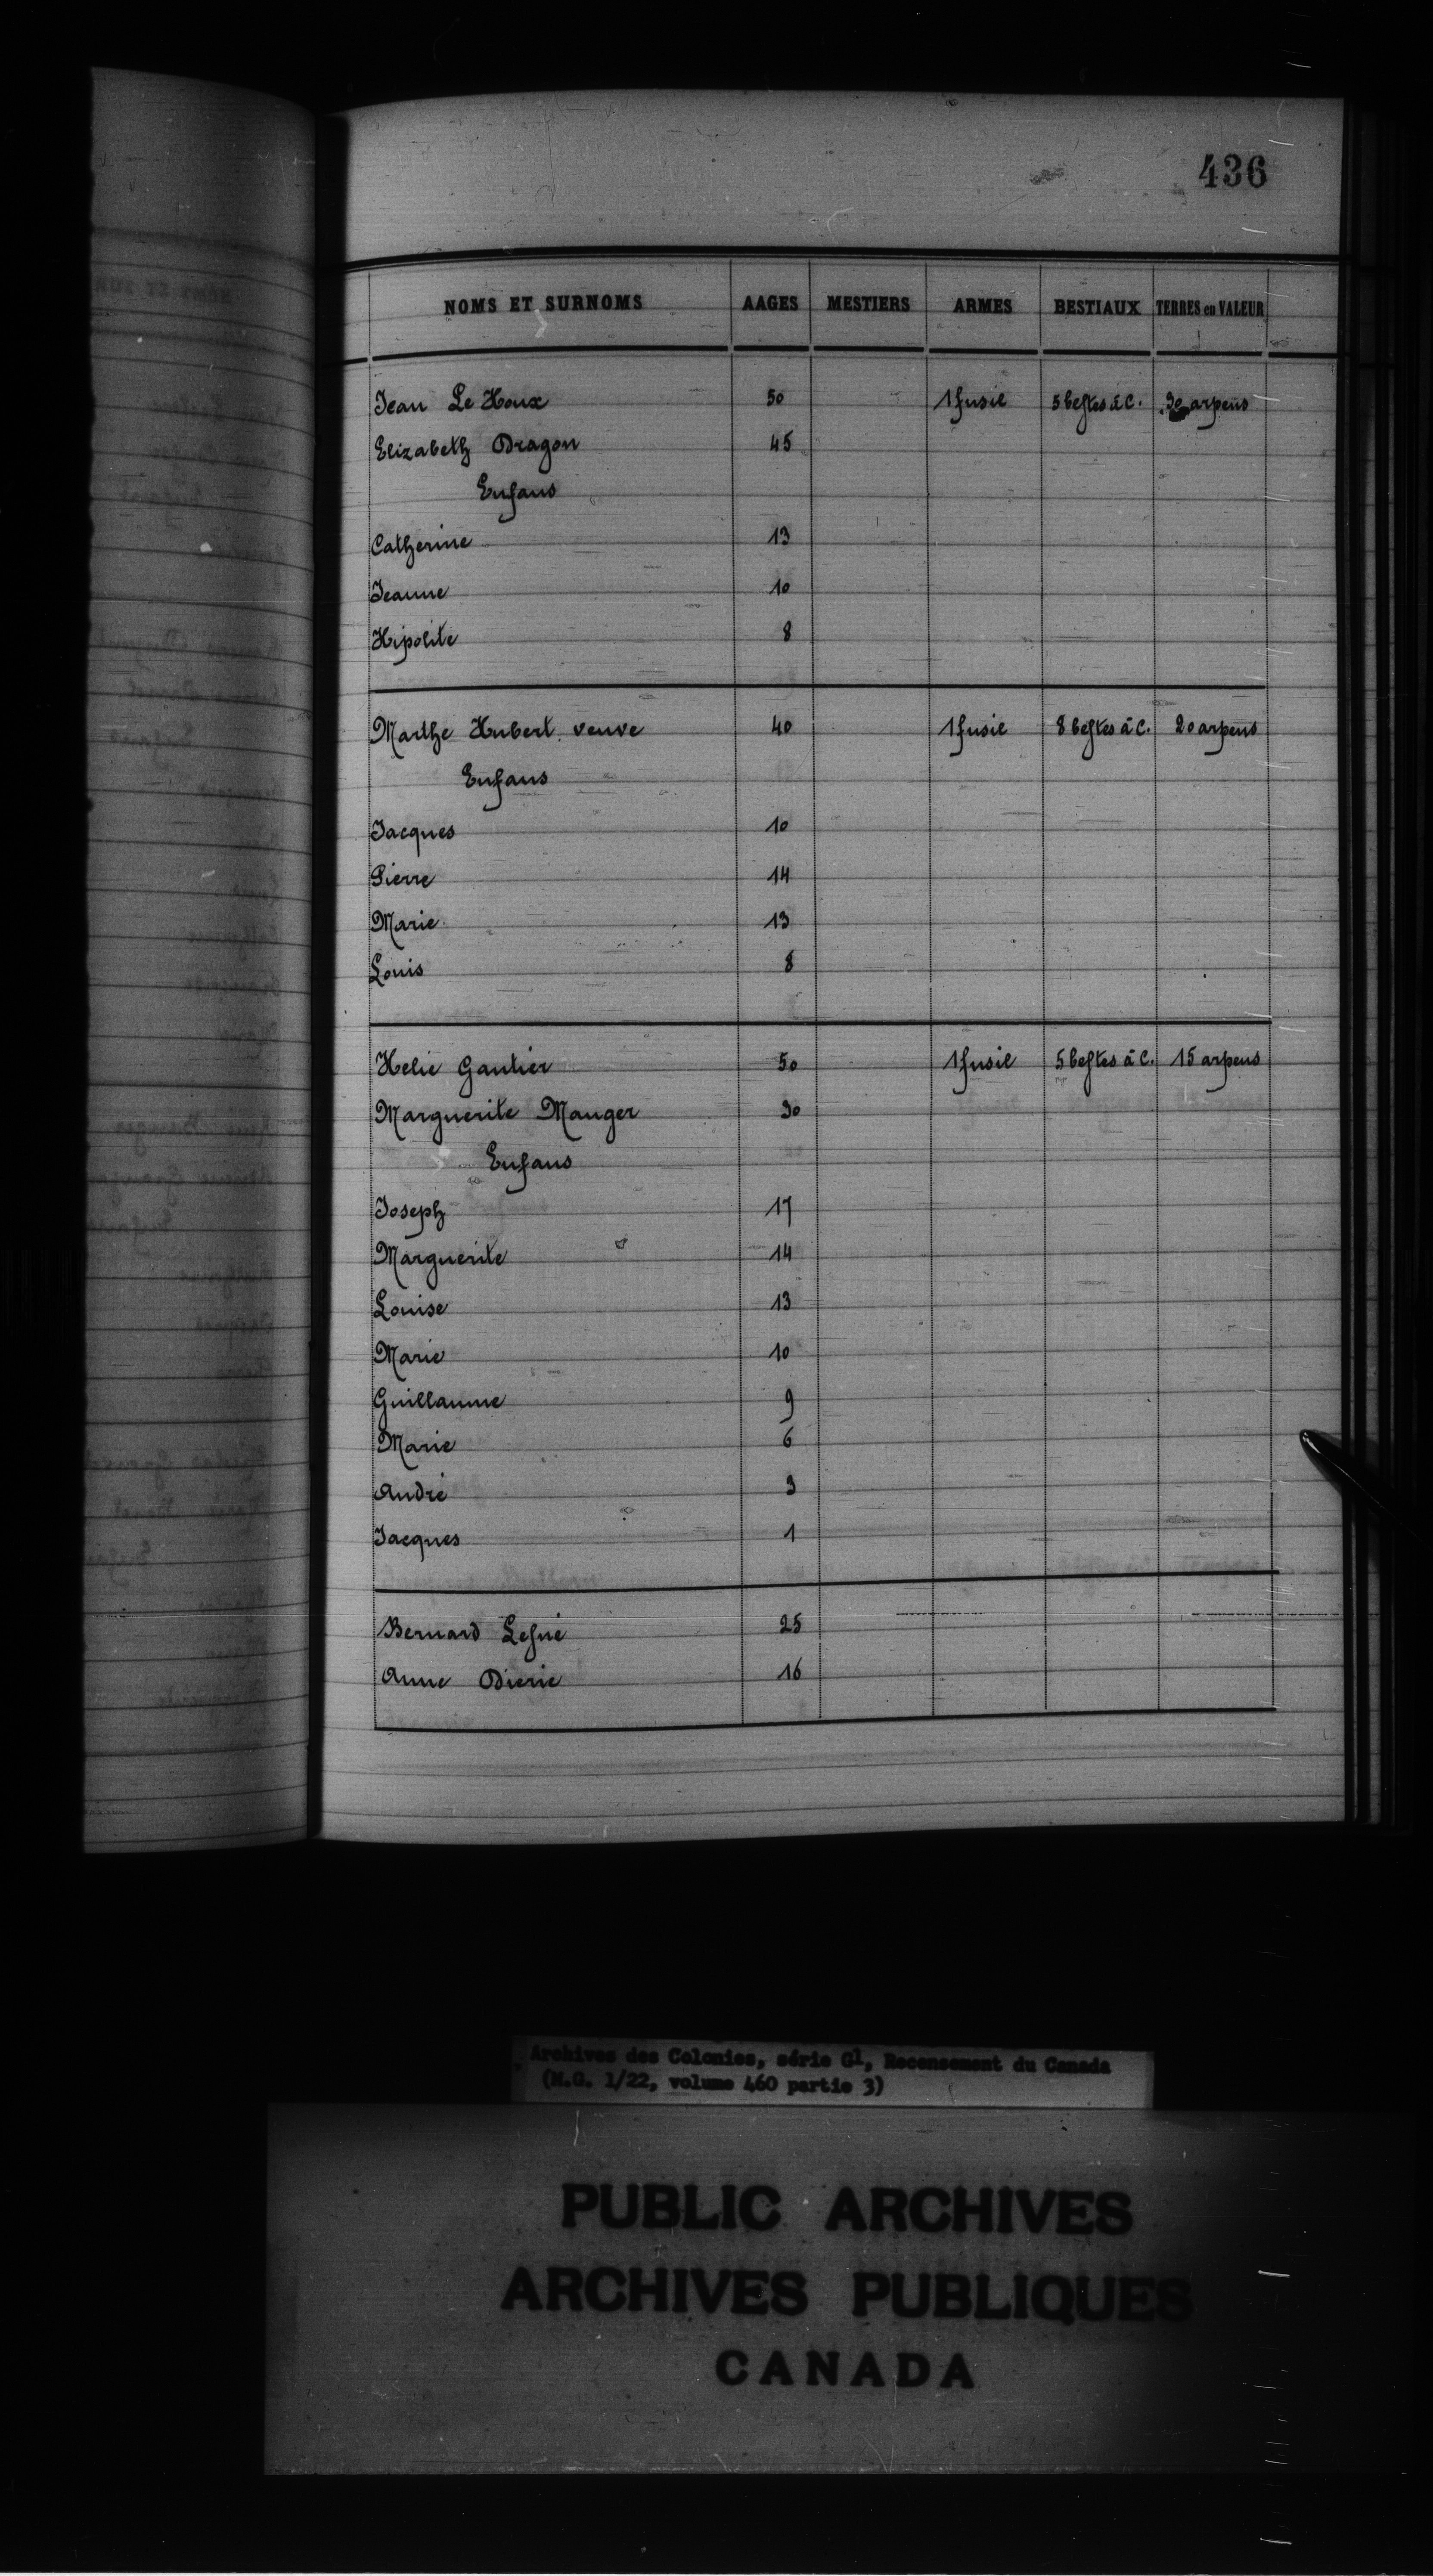 436
NOMS ET SURNOMS AAGES MESTIERS ARMES BESTIAUX TERRES en VALEUR
Jean Le Houx 50 1 fusil 5 bestes à C. 30 arpens
Elizabeth Dragon 45
Enfans
Catherine 13
Jeanne 10
Hipolite 8
Marthe Hubert veuve 40 1 fusil 8 bestes à C. 20 arpens
Enfans
Jacques 10
Pierre 14
Marie 13
Louis 8
Helie Gautier 50 1 fusil 5 bestes à C. 15 arpens
Marguerite Manger 30
Enfans
Joseph 17
Marguerite 14
Louise 13
Marie 10
Guillaume 9
Marie 6
André 3
Jacques 1
Bernard Lesné 25
Anne Dierie 16
Archives des Colonies, série G1, Recensement du Canada
(M.G. 1/22, volume 460 partie 3)
PUBLIC ARCHIVES
ARCHIVES PUBLIQUES
CANADA